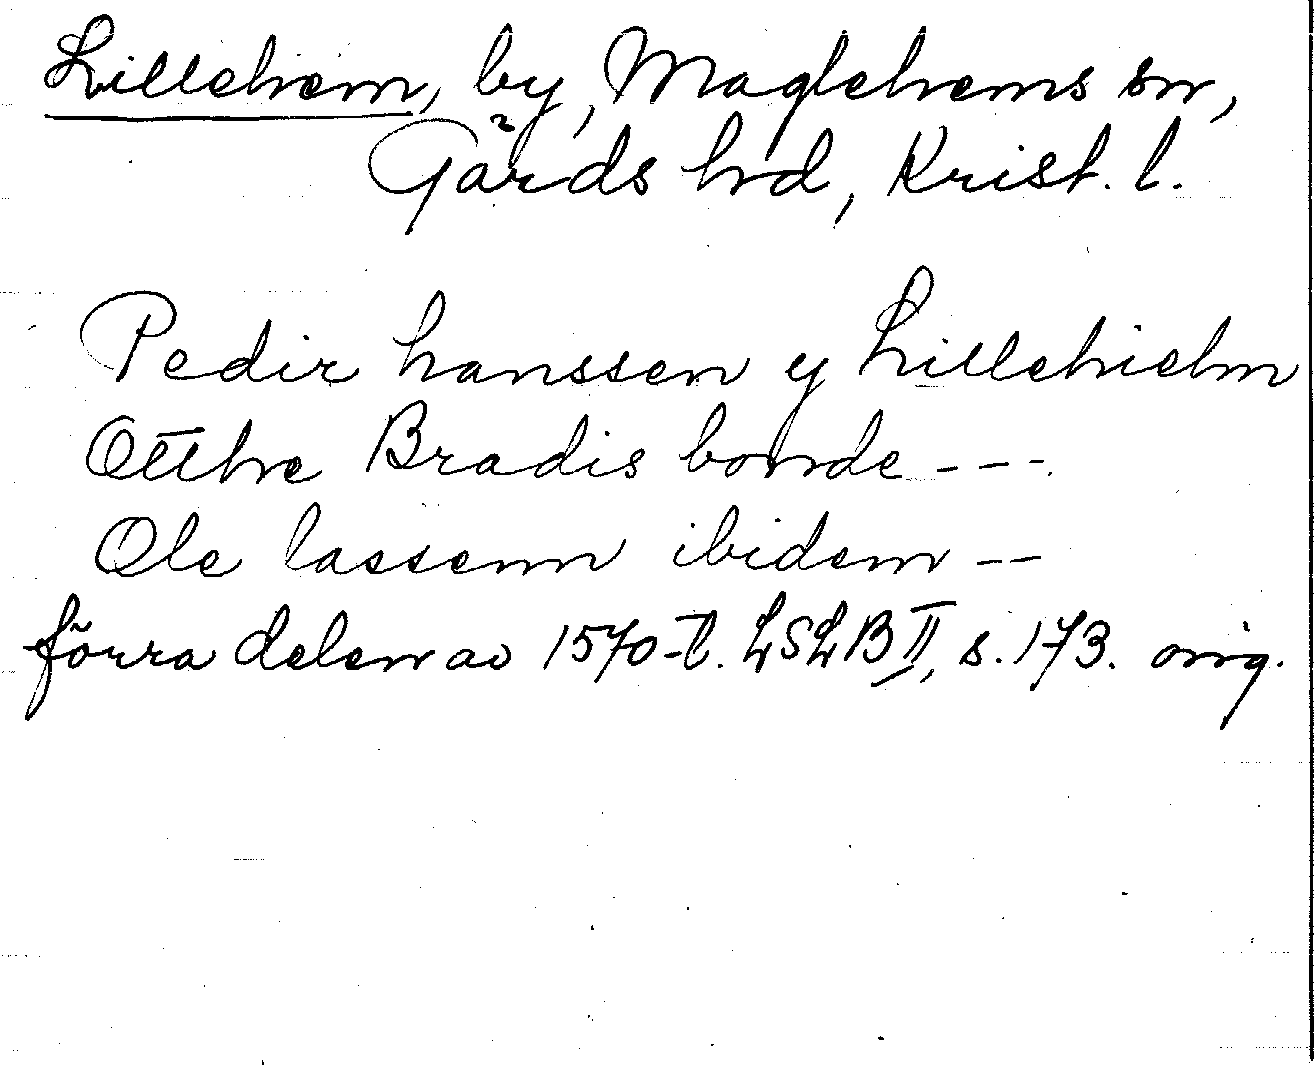 Lillehem, by, Maglehems sn,
Gärds hd, Krist. l.
Pedir hanssen y Lillehielm
Otthe Bradis bonde - - -
Ole lassenn ibidem - -
förra delen av 1570-t. LSLB II, s. 173. orig.